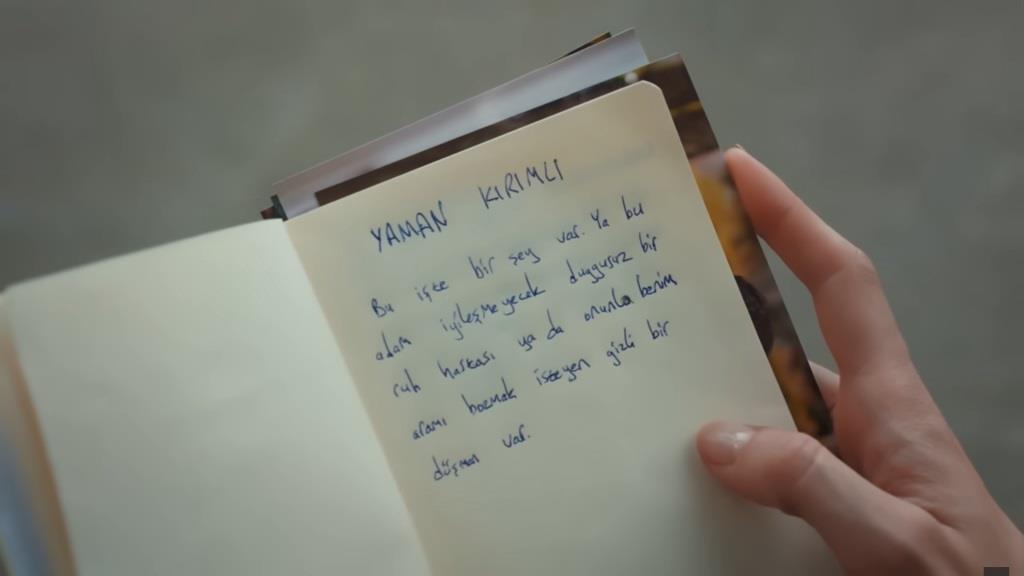 YAMAN KIRIMLI
Bu işte bir şey var. Ya bu
adam iyileşmeyecek duygusuz bir
ruh hastası ya da onunla benim
aramı bozmak isteyen gizli bir
düşman var.